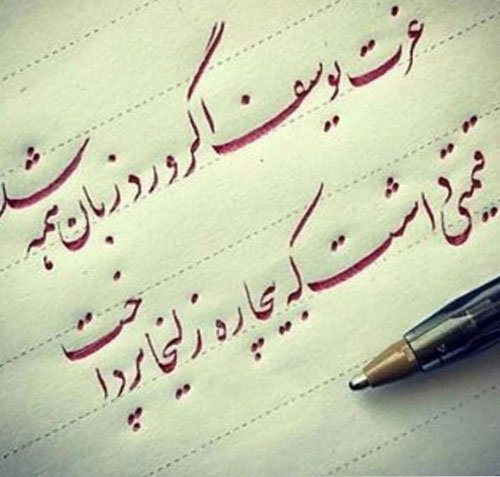 عزت یوسف اگر ورد زبان همه شد
قیمتی داشت که بیچاره زلیخا پرداخت